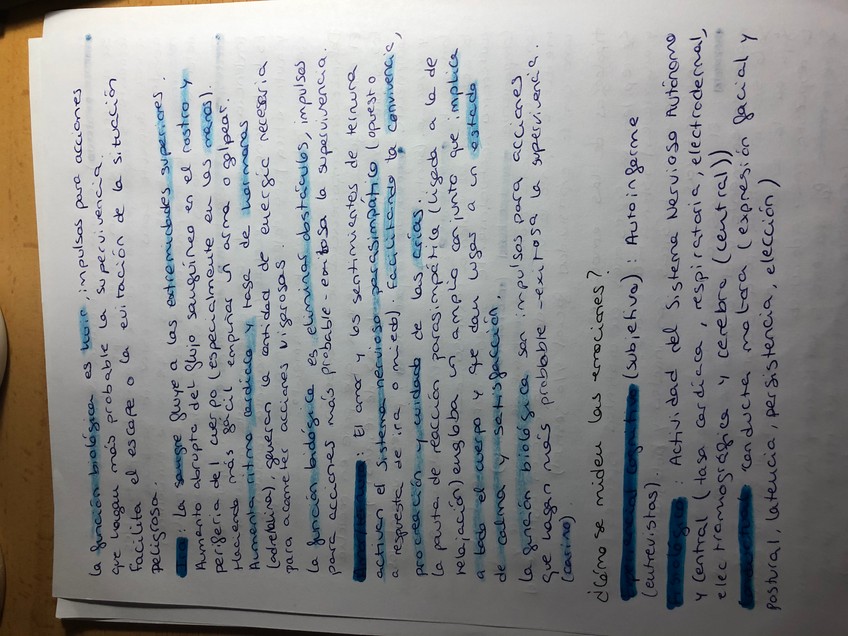 La función biológica es huir, impulsos para acciones
que hagan más probable la supervivencia.
Facilita el escape o la evitación de la situación
peligrosa.
: La sangre fluye a las extremidades superiores.
Aumento abrupto del flujo sanguíneo en el rostro y
periferia del cuerpo (especialmente en las manos).
Haciendo más fácil empuñar un arma o golpear.
Aumenta ritmo cardiaco y tasa de hormonas
(adrenalina), generan la cantidad de energía necesaria
para acometer acciones vigorosas.
La función biológica es eliminar obstáculos, impulsos
para acciones más probable-exitosa la supervivencia.
: El amor y los sentimientos de ternura
activan el Sistema nervioso parasimpático (opuesto
a respuesta de ira o miedo). Facilitando la convivencia,
procreación y cuidado de las crías.
La pauta de reacción parasimpática (ligada a la de
relajación) engloba un amplio conjunto que implica
a todo el cuerpo y que dan lugar a un estado
de calma y satisfacción.
La función biológica son impulsos para acciones
que hagan más probable-exitosa la supervivencia.
(cariño)
¿Cómo se miden las emociones?
(subjetivo): Autoinforme
(entrevistas).
: Actividad del Sistema Nervioso Autónomo
y Central (tasa cardíaca, respiratoria, electrodermal,
electromiográfica y cerebro (central))
conducta motora (expresión facial y
postural, latencia, persistencia, elección)